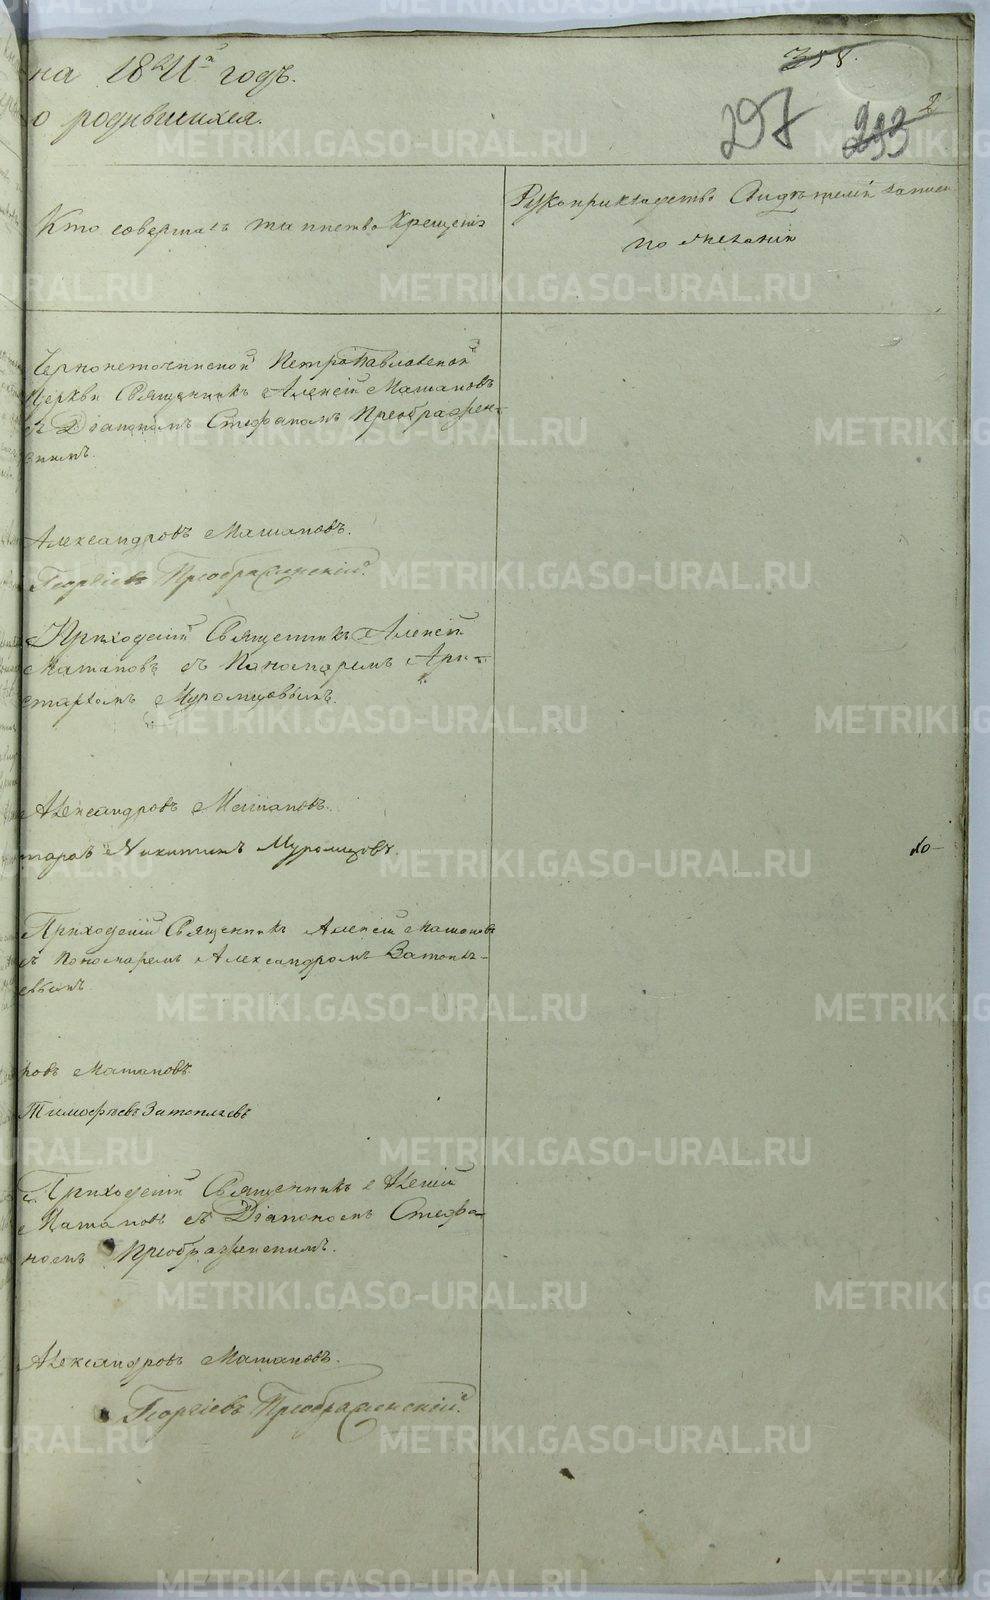 на 1841й годъ.
о родившихся.
358.
297
293
2
Кто совершалъ таинство Крещенія
Рукоприкладство Свидѣтелей записи
по желанію
Черноисточинской Петропавловской
Церкви Священникъ Алексій Машановъ
съ Діакономъ Стефаномъ Преображен-
скимъ.
Александровъ Машановъ.
Георгіевъ Преображенский.
Приходский Священникъ Алексій
Машановъ съ Пономаремъ Ари-
стархомъ Муромцовымъ.
Александровъ Машановъ.
Никитинъ Муромцовъ
Приходскій Священникъ Алексій Машановъ
съ Пономаремъ Александромъ
ровъ Машановъ.
Тимофѣевъ
Приходский Священникъ Алексій
Машановъ съ Діакономъ Стефа-
номъ Преображенскимъ.
Александровъ Машановъ.
Георгіевъ Преображенскій.
METRIKI.GASO-URAL.RU